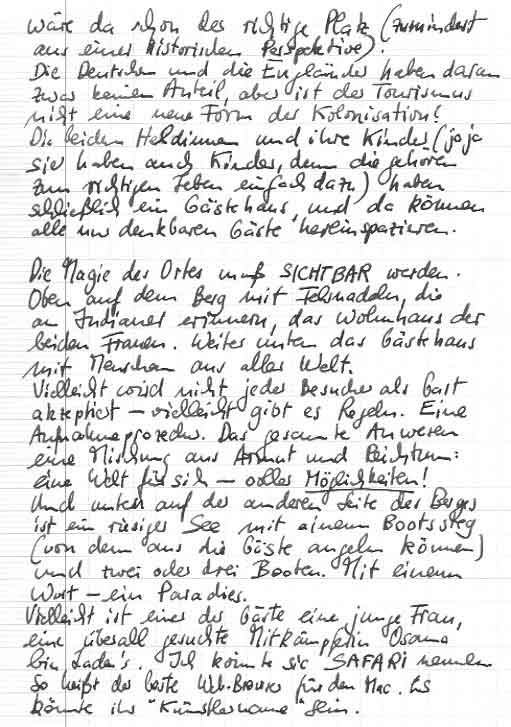 wäre da schon der richtige Platz (zumindest
aus einer historischen Perspektive).
Die Deutschen und die Engländer haben daran
zwar keinen Anteil, aber ist der Tourismus
nicht eine neue Form der Kolonisation?
Die beiden Heldinnen und ihre Kinder (ja ja
sie haben auch Kinder, denn die gehören
zum richtigen Leben einfach dazu) haben
schließlich ein Gästehaus, und da können
alle nur denkbaren Gäste hereinspazieren.
Die Magie des Ortes muß SICHTBAR werden.
Oben auf dem Berg mit Felsnadeln, die
an Indianer erinnern, das Wohnhaus der
beiden Frauen. Weiter unten das Gästehaus
mit Menschen aus aller Welt.
Vielleicht wird nicht jeder Besucher als Gast
akzeptiert – vielleicht gibt es Regeln. Eine
Aufnahmeprozedur. Das gesamte Anwesen
eine Mischung aus Armut und Reichtum:
eine Welt für sich – voller Möglichkeiten!
Und unten auf der anderen Seite des Berges
ist ein riesiger See mit einem Bootssteg
(von dem aus die Gäste angeln können)
und zwei oder drei Booten. Mit einem
Wort – ein Paradies.
Vielleicht ist einer der Gäste eine junge Frau,
eine überall gesuchte Mitkämpferin Osama
bin Laden's. Ich könnte sie SAFARI nennen
So heißt der beste Web-Browser für den Mac. Es
könnte ihr "Künstlername" sein.